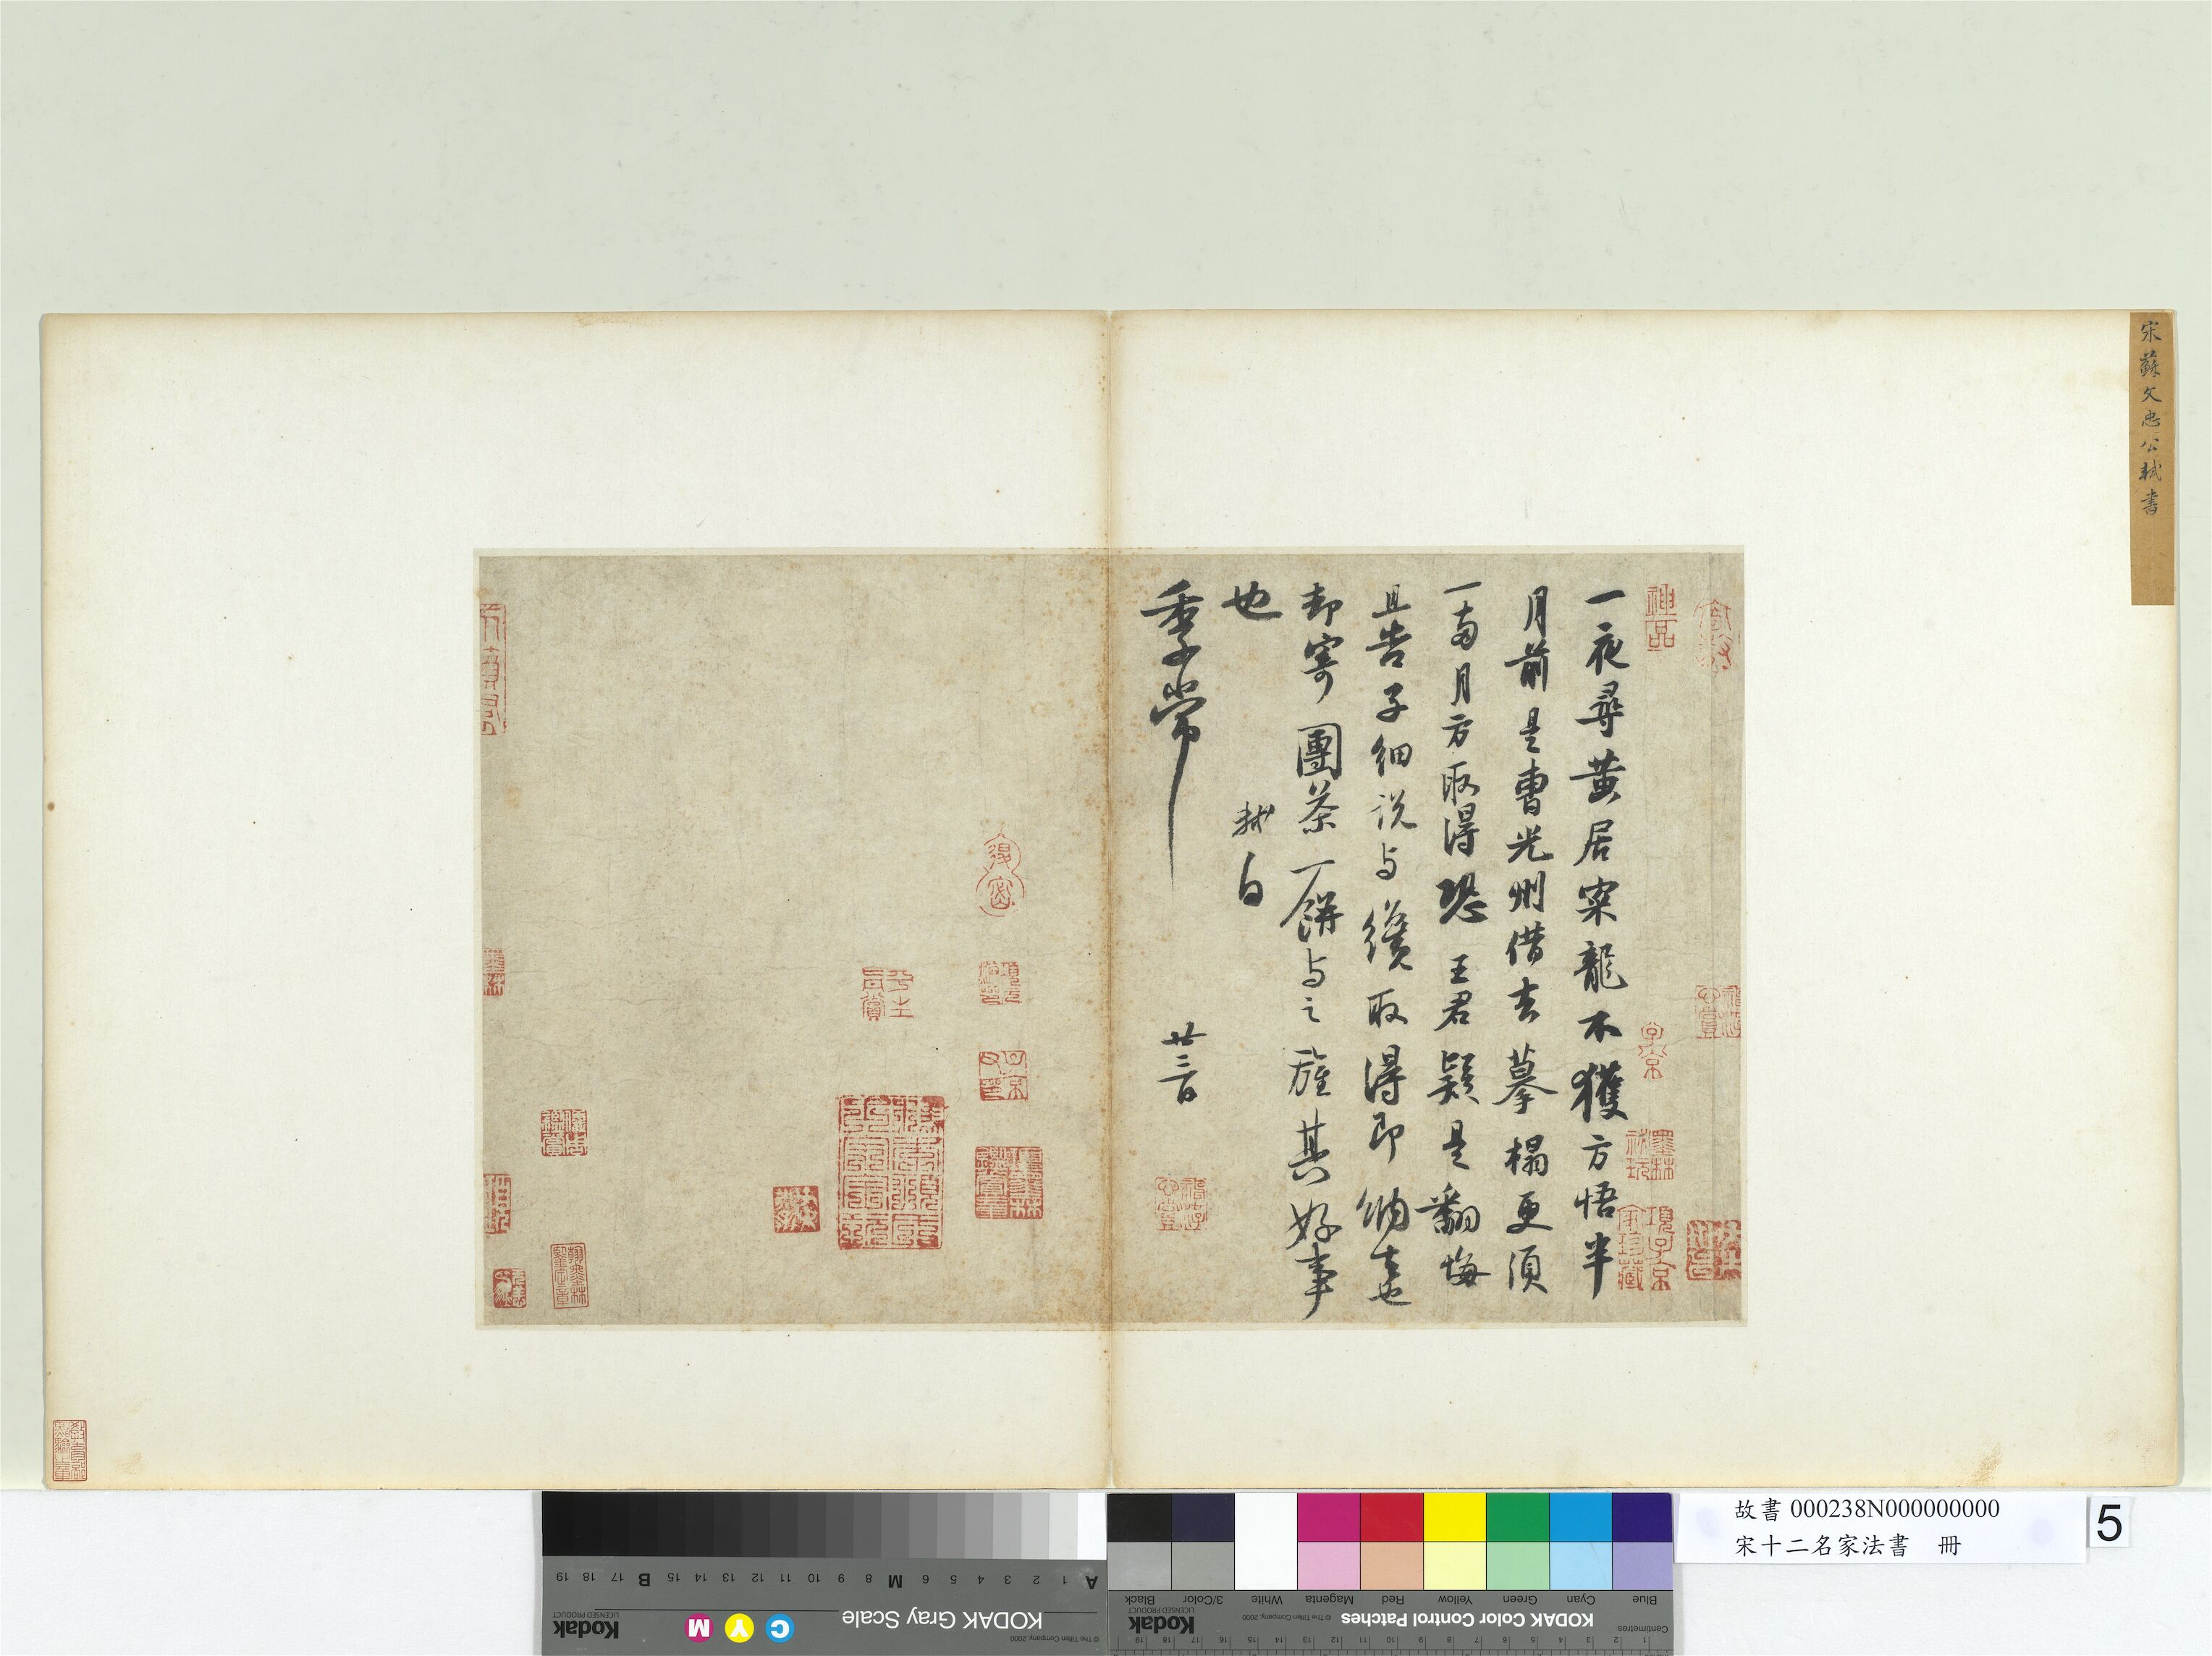 宋蘇文忠公軾書
神品
子京
一夜尋黃居寀龍不獲方悟半
月前是曹光州借去摹搨更須
一兩月方取得恐王君疑是翻悔
且告子細說与纔取得即納去也
却寄團茶一餅与之旌其好事
也
軾白
季常
廿三日
故書 000238N000000000
宋十二名家法書 冊
5
KODAK Gray Scale
Kodak
LICENSED PRODUCT
© The Tiffen Company, 2000
C Y M
A 1 2 3 4 5 6 M 8 9 10 11 12 13 14 15 B 17 18 19
KODAK Color Control Patches
Kodak
LICENSED PRODUCT
© The Tiffen Company, 2000
Blue Cyan Green Yellow Red Magenta White 3/Color Black
Centimetres